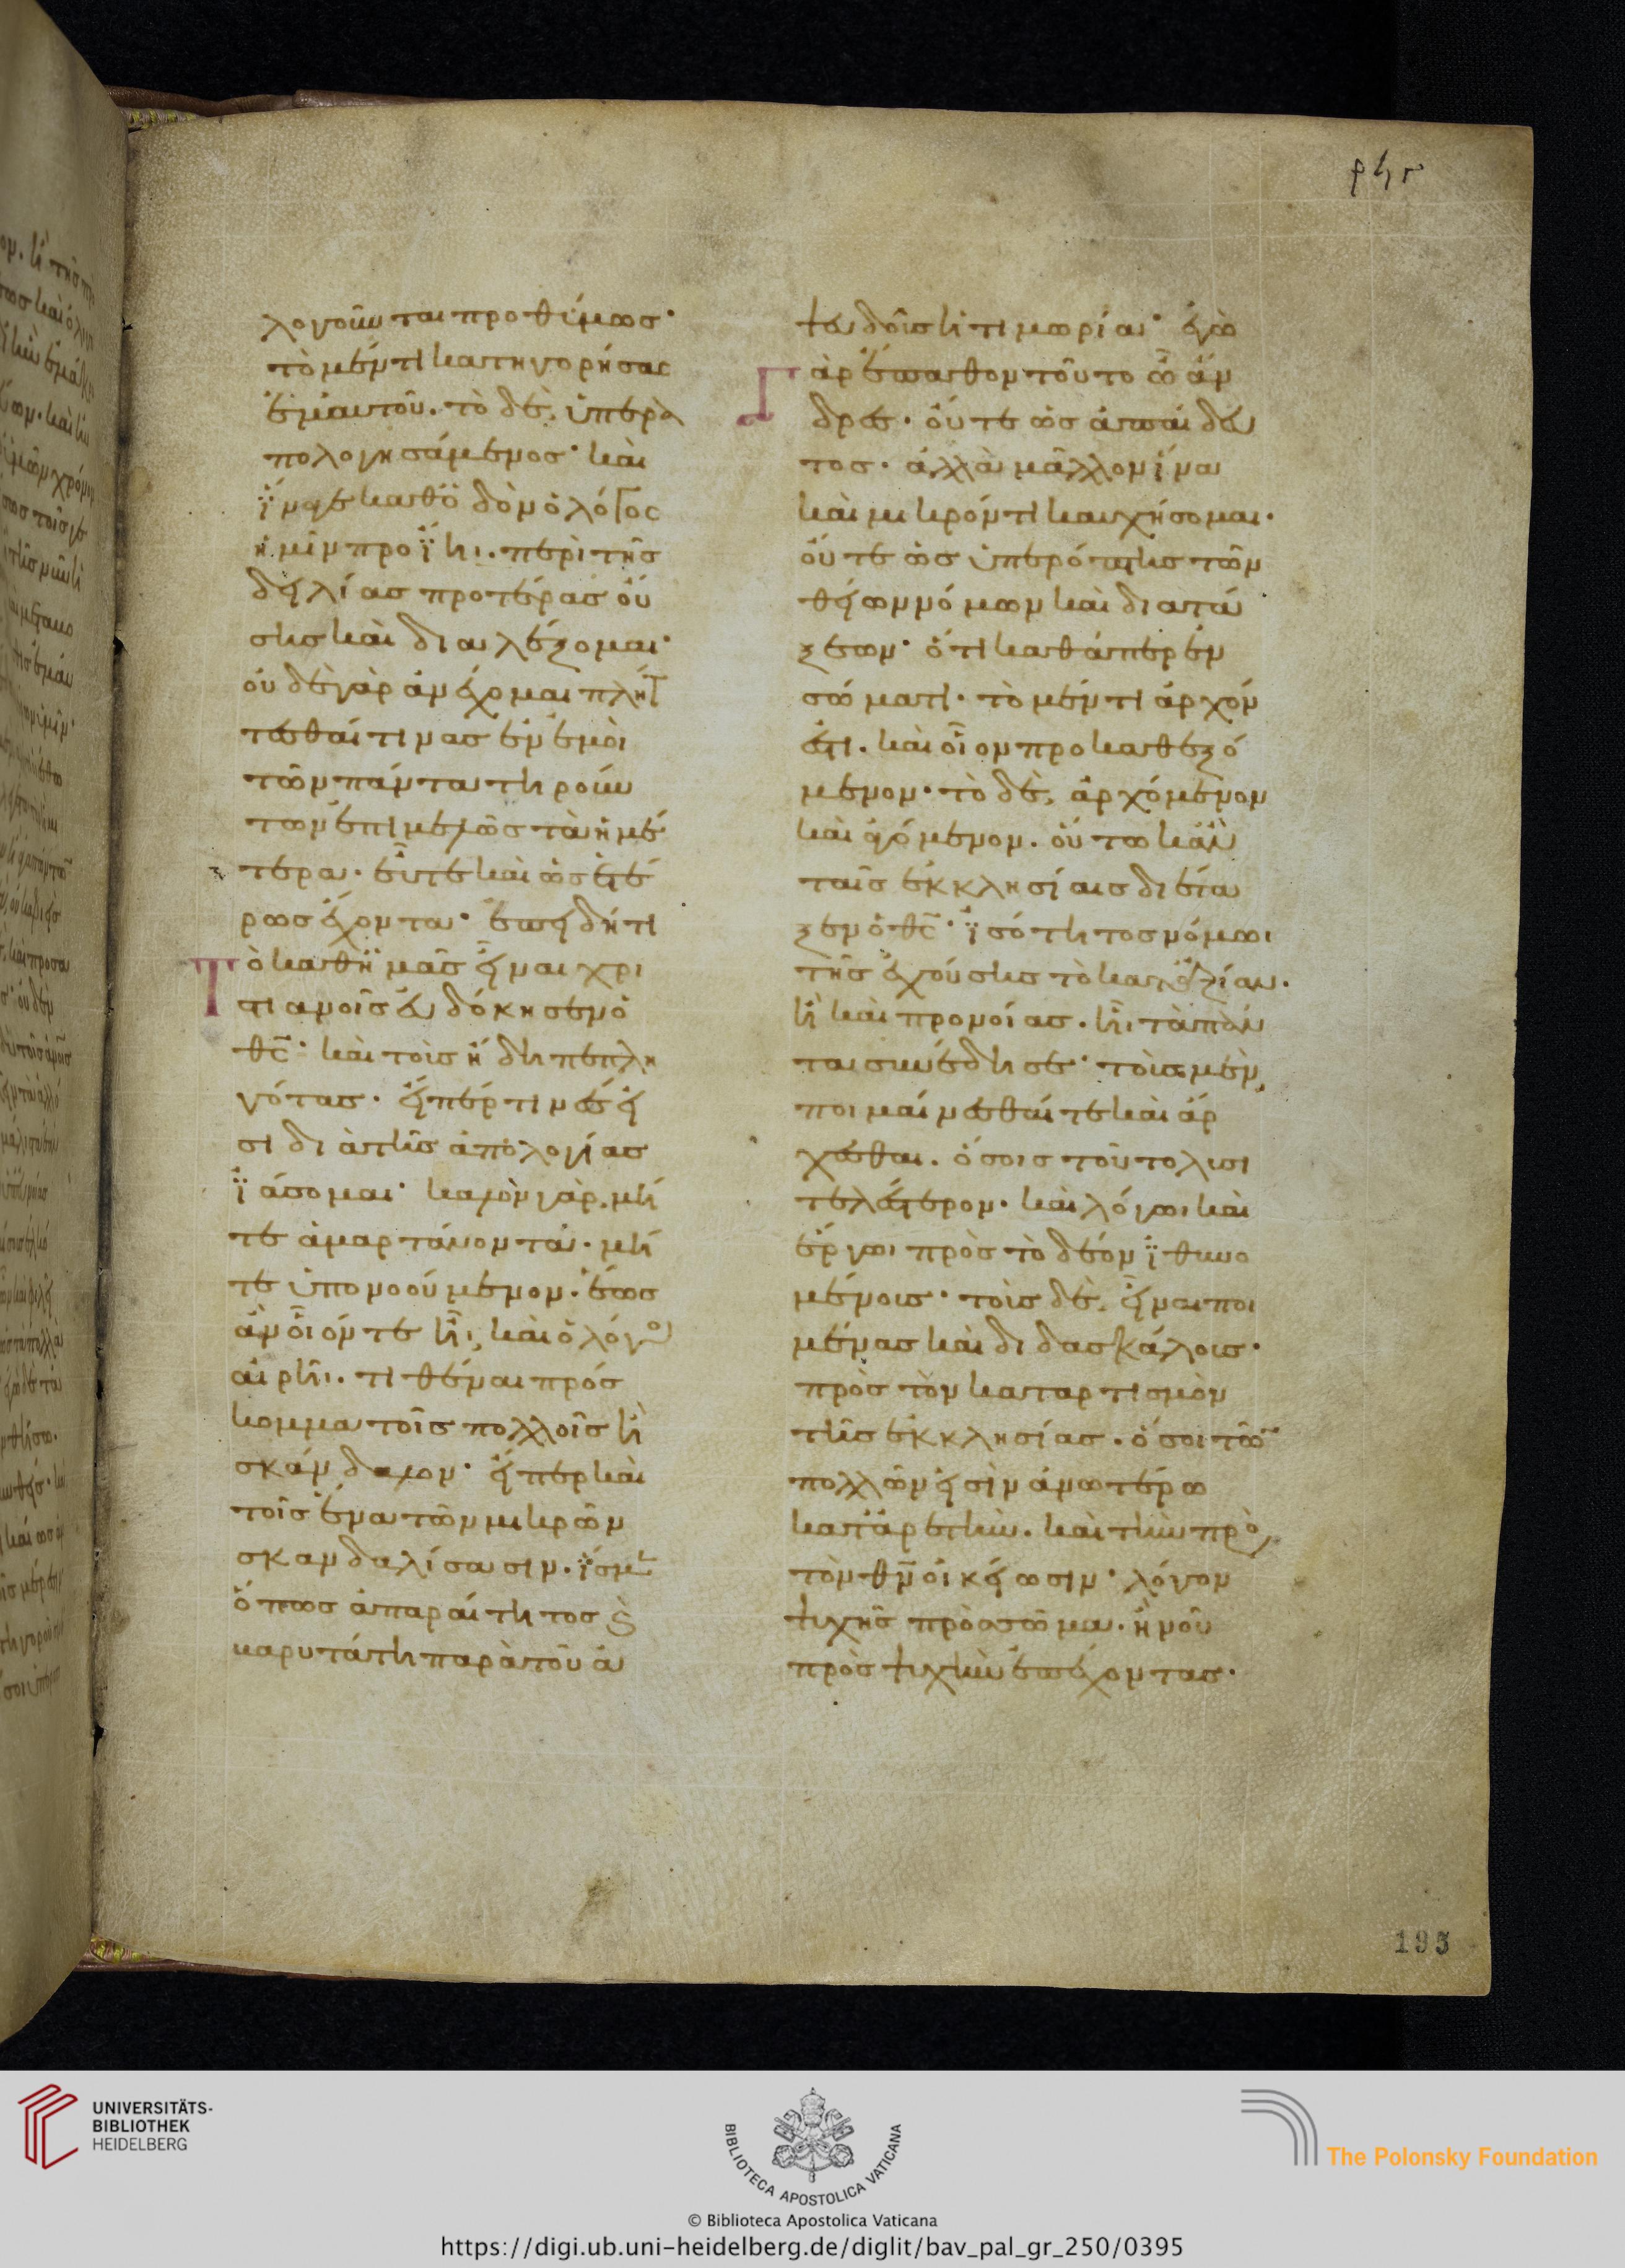 ρϟγ
λογοῦνται προθύμως·
τὸ μέν τι κατηγορήσας
ἐμαυτοῦ. τὸ δὲ, ὑπερα
πολογησάμενος· καὶ
ἵν' εὖ καθ' ὁδὸν ὁ λόγος
ἡμῖν προΐηι. περὶ τῆς
δειλίας προτέρας οὔ
σης καὶ διαλέξομαι·
οὐδὲ γὰρ ἀνέχομαι πλήτ
τεσθαί τινας ἐν ἐμοὶ
τῶν πάντα τηρούν
των ἐπιμελῶς τὰ ἡμέ
τερα. εὖ τε καὶ ὡς ἑτέ
ρως ἔχοντα· ἐπειδή τι
τὸ καθ' ἡμᾶς εἶναι χρι
στιανοῖς εὐδόκησεν ὁ
θς· καὶ τοὺς ἤδη πεπλη
γότας. εἴπέρ τινές εἰ
σι διὰ τῆς ἀπολογίας
ἰάσομαι· καλὸν γὰρ. μή
τε ἁμαρτάνοντα. μή
τε ὑπονοούμενον. ἕως
ἂν οἷόν τε ἦι, καὶ ὁ λόγος
αἱρῆι. τιθέναι πρόσ
κομμα τοῖς πολλοῖς ἢ
σκάνδαλον· εἴπερ καὶ
τοῖς ἕνα τῶν μικρῶν
σκανδαλίσασιν. ἴσμεν
ὅπως ἀπαραίτητος καὶ
βαρυτάτη παρὰ τοῦ ἀ
ψευδοῦς ἡ τιμωρία· ἐγὼ
γὰρ ἔπαθον τοῦτο ὦ ἄν
δρες. οὔτε ὡς ἀπαίδευ
τος. ἀλλὰ μᾶλλον ἵνα
καὶ μικρόν τι καυχήσομαι.
οὔτε ὡς ὑπερόπτης τῶν
θείων νόμων καὶ διατά
ξεων· ὅτι καθάπερ ἐν
σώματι. τὸ μέν τι ἄρχόν
ἐστι. καὶ οἷον προκαθεζό
μενον· τὸ δὲ, ἀρχόμενον
καὶ ἀγόμενον. οὕτω κἀν
ταῖς ἐκκλησίαις διέτα
ξεν ὁ θς· ἰσότητος νόμωι
τῆς ἐχούσης τὸ κατ' ἀξίαν.
ἢ καὶ προνοίας. ἧι τὰ πάν
τα συνέδησε· τοὺς μὲν,
ποιμαίνεσθαί τε καὶ ἄρ
χεσθαι. ὅσοις τοῦτο λυσι
τελέστερον. καὶ λόγωι καὶ
ἔργωι πρὸς τὸ δέον ἰθυνο
μένοις· τοὺς δὲ, εἶναι ποι
μένας καὶ διδασκάλους·
πρὸς τὸν καταρτισμὸν
τῆς ἐκκλησίας. ὅσοι τῶν
πολλῶν εἰσὶν ἀνωτέρω
κατ' ἀρετὴν. καὶ τὴν πρὸς
τὸν θν οἰκείωσιν· λόγον
ψυχῆς πρὸς σῶμα. ἢ νοῦ
πρὸς ψυχὴν ἐπέχοντας.
193
UNIVERSITÄTS-
BIBLIOTHEK
HEIDELBERG
BIBLIOTECA APOSTOLICA VATICANA
The Polonsky Foundation
© Biblioteca Apostolica Vaticana
https://digi.ub.uni-heidelberg.de/diglit/bav_pal_gr_250/0395